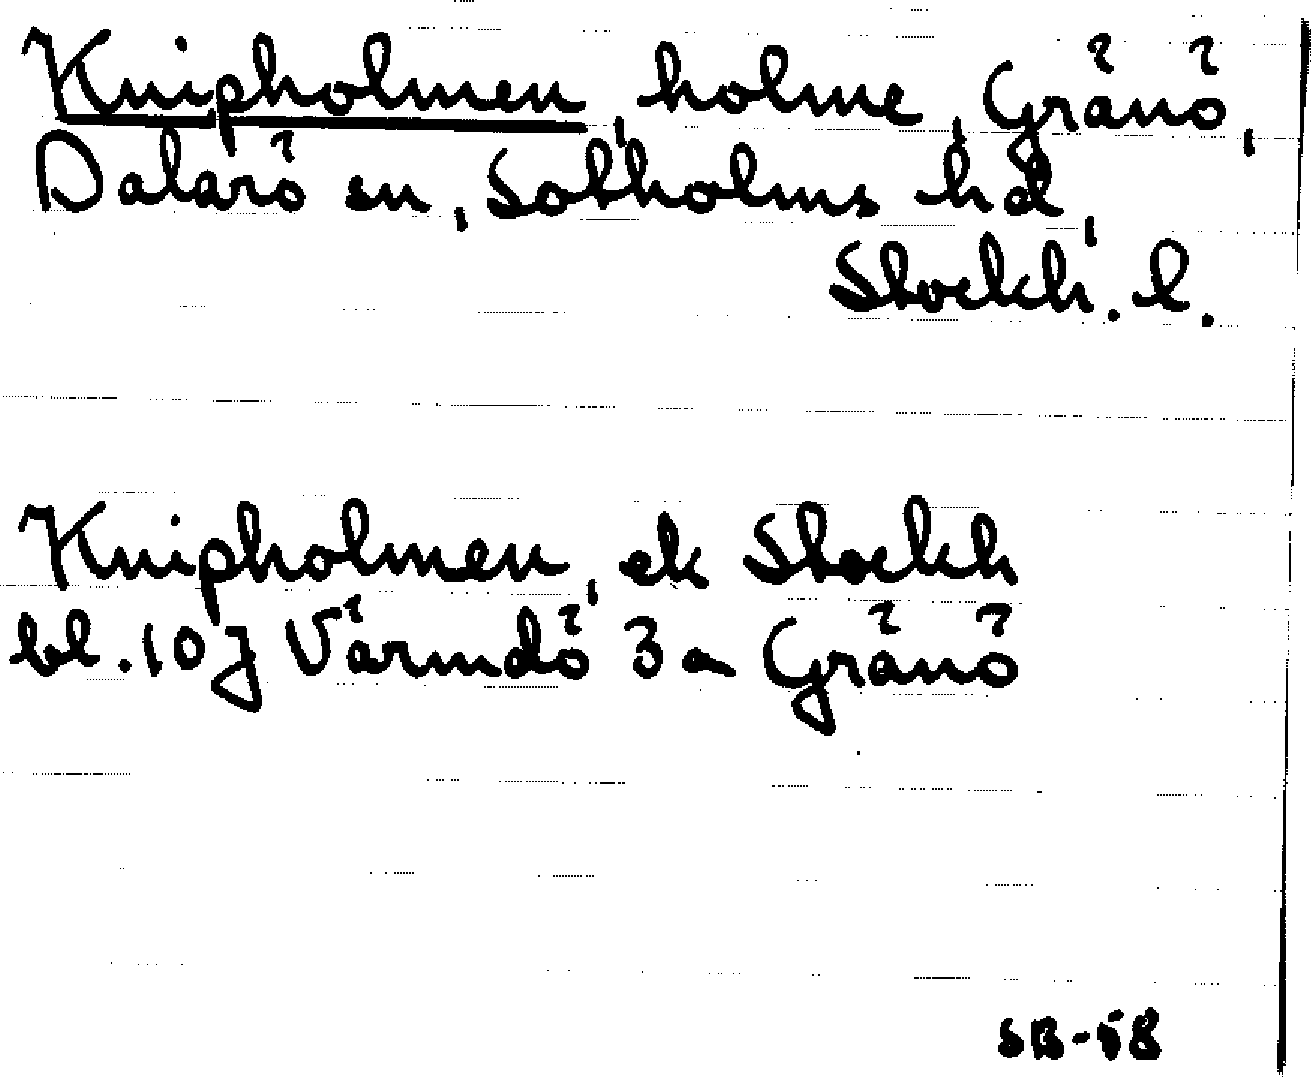 Knipholmen, holme, Gränö,
Dalarö sn, Sotholms hd,
Stockh. l.
Knipholmen, ek Stockh
bl. 10 J Värmdö 3 a Gränö
SB-58